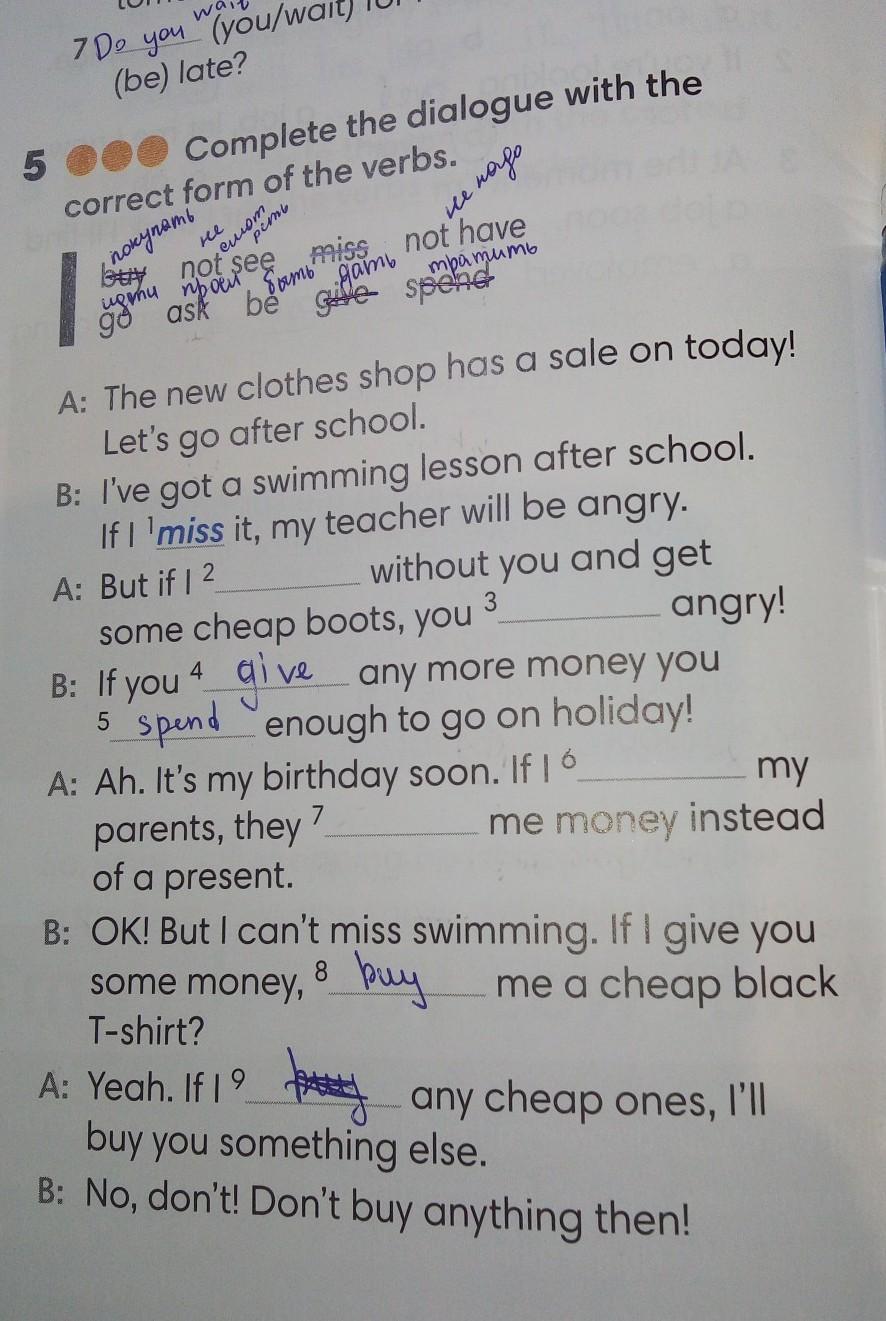 wait
7 Do you (you/wait)
(be) late?
5 Complete the dialogue with the
correct form of the verbs.
покупать не не надо
buy not see miss not have
идти дать тратить
go ask be give spend
A: The new clothes shop has a sale on today!
Let's go after school.
B: I've got a swimming lesson after school.
If I 1 miss it, my teacher will be angry.
A: But if I 2 without you and get
some cheap boots, you 3 angry!
B: If you 4 give any more money you
5 spend enough to go on holiday!
A: Ah. It's my birthday soon. If I 6 my
parents, they 7 me money instead
of a present.
B: OK! But I can't miss swimming. If I give you
some money, 8 buy me a cheap black
T-shirt?
A: Yeah. If I 9 buy any cheap ones, I'll
buy you something else.
B: No, don't! Don't buy anything then!